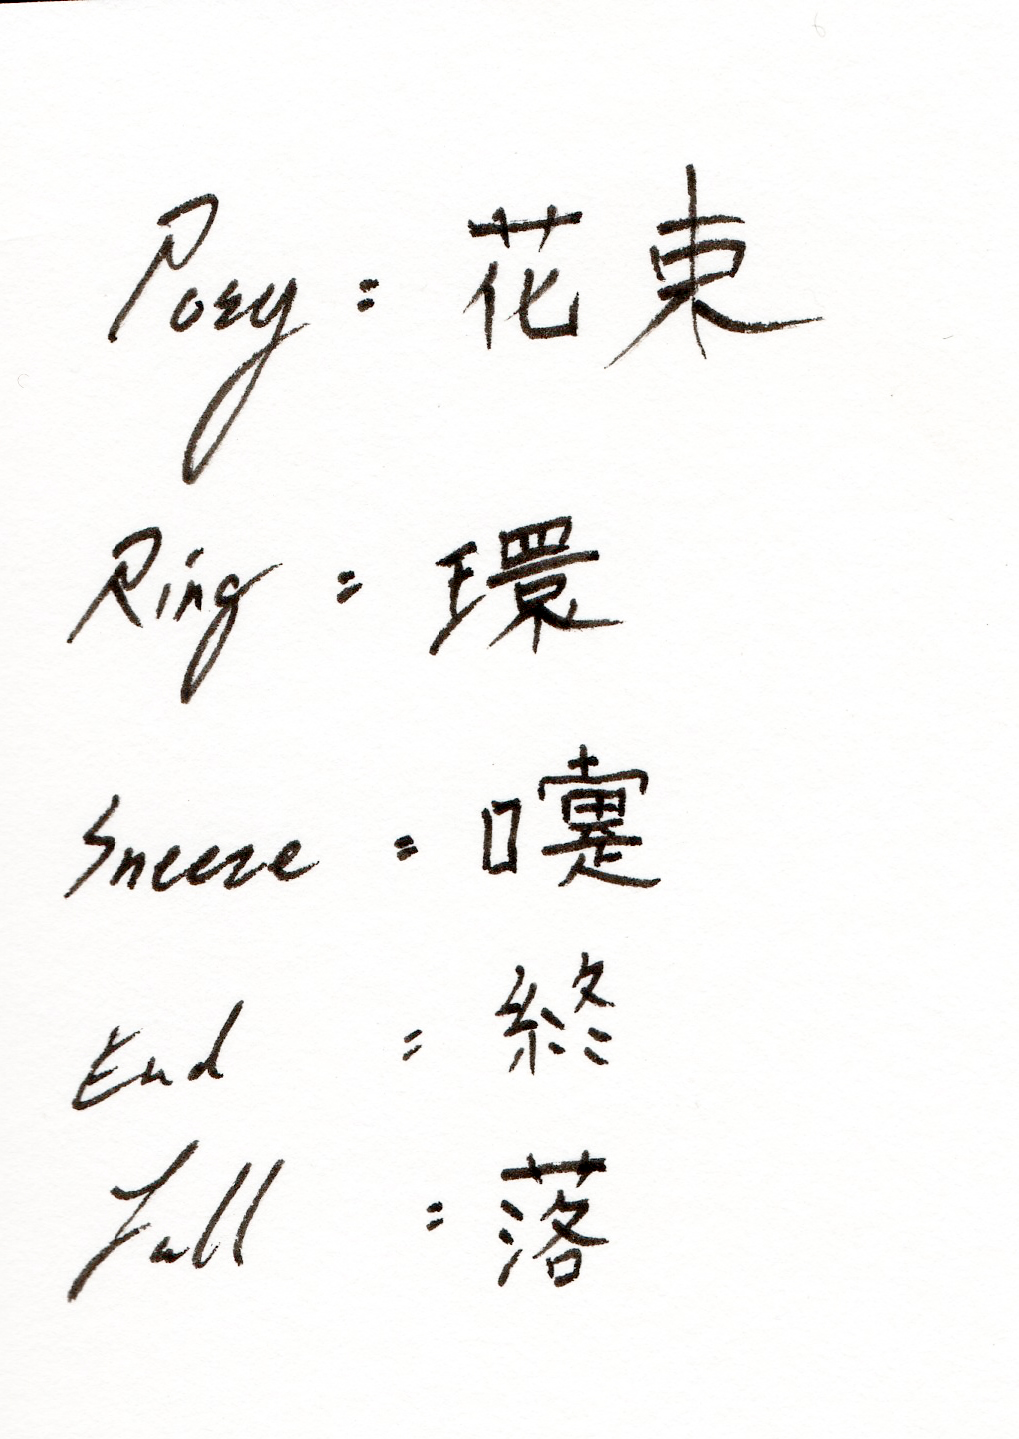 Posy = 花束
Ring = 環
Sneeze = 嚔
End = 終
Fall = 落